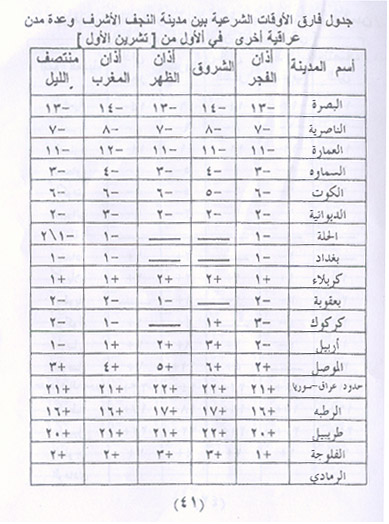 جدول فارق الأوقات الشرعية بين مدينة النجف الأشرف وعدة مدن
عراقية أخرى في الأول من [ تشرين الأول ]
أسم المدينة أذان الفجر الشروق أذان الظهر أذان المغرب منتصف الليل
البصرة -١٣ -١٤ -١٣ -١٤ -١٣
الناصرية -٧ -٨ -٧ -٨ -٧
العمارة -١١ -١١ -١١ -١٢ -١١
السماوه -٣ -٤ -٣ -٤ -٣
الكوت -٦ -٥ -٦ -٦ -٦
الديوانية -٢ -٢ -٢ -٣ -٢
الحلة -١ — — -١ -١\٢
بغداد -١ — — -١ -١
كربلاء +١ +٢ +٢ +١ +١
بعقوبة -٢ — -١ -٢ -٢
كركوك -٣ +١ — -١ -٢
أربيل -٢ +٣ +٢ +١ -١
الموصل +٢ +٦ +٥ +٤ +٣
حدود عراق-سوريا +٢١ +٢٢ +٢٢ +٢١ +٢١
الرطبه +١٦ +١٧ +١٧ +١٦ +١٦
طريبيل +٢٠ +٢٢ +٢١ +٢١ +٢٠
الفلوجة +١ +٣ +٣ +٢ +٢
الرمادي
(٤١)